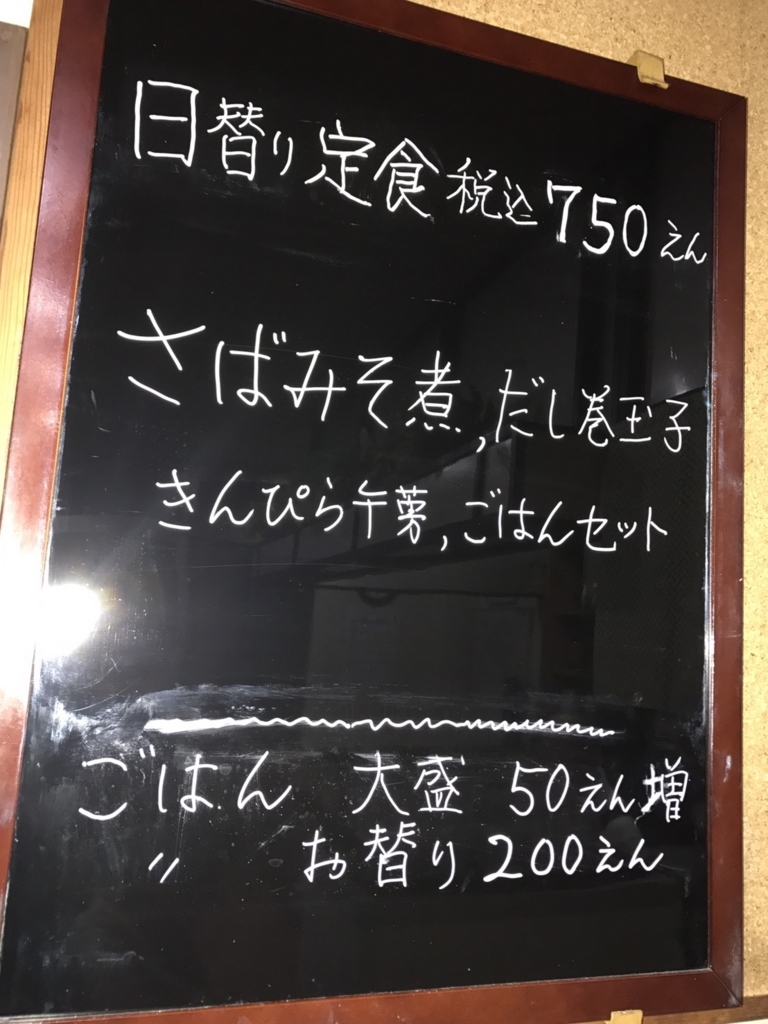 日替り定食 税込750えん
さばみそ煮,だし巻玉子
きんぴら午蒡,ごはんセット
ごはん 大盛 50えん増
〃 お替り 200えん